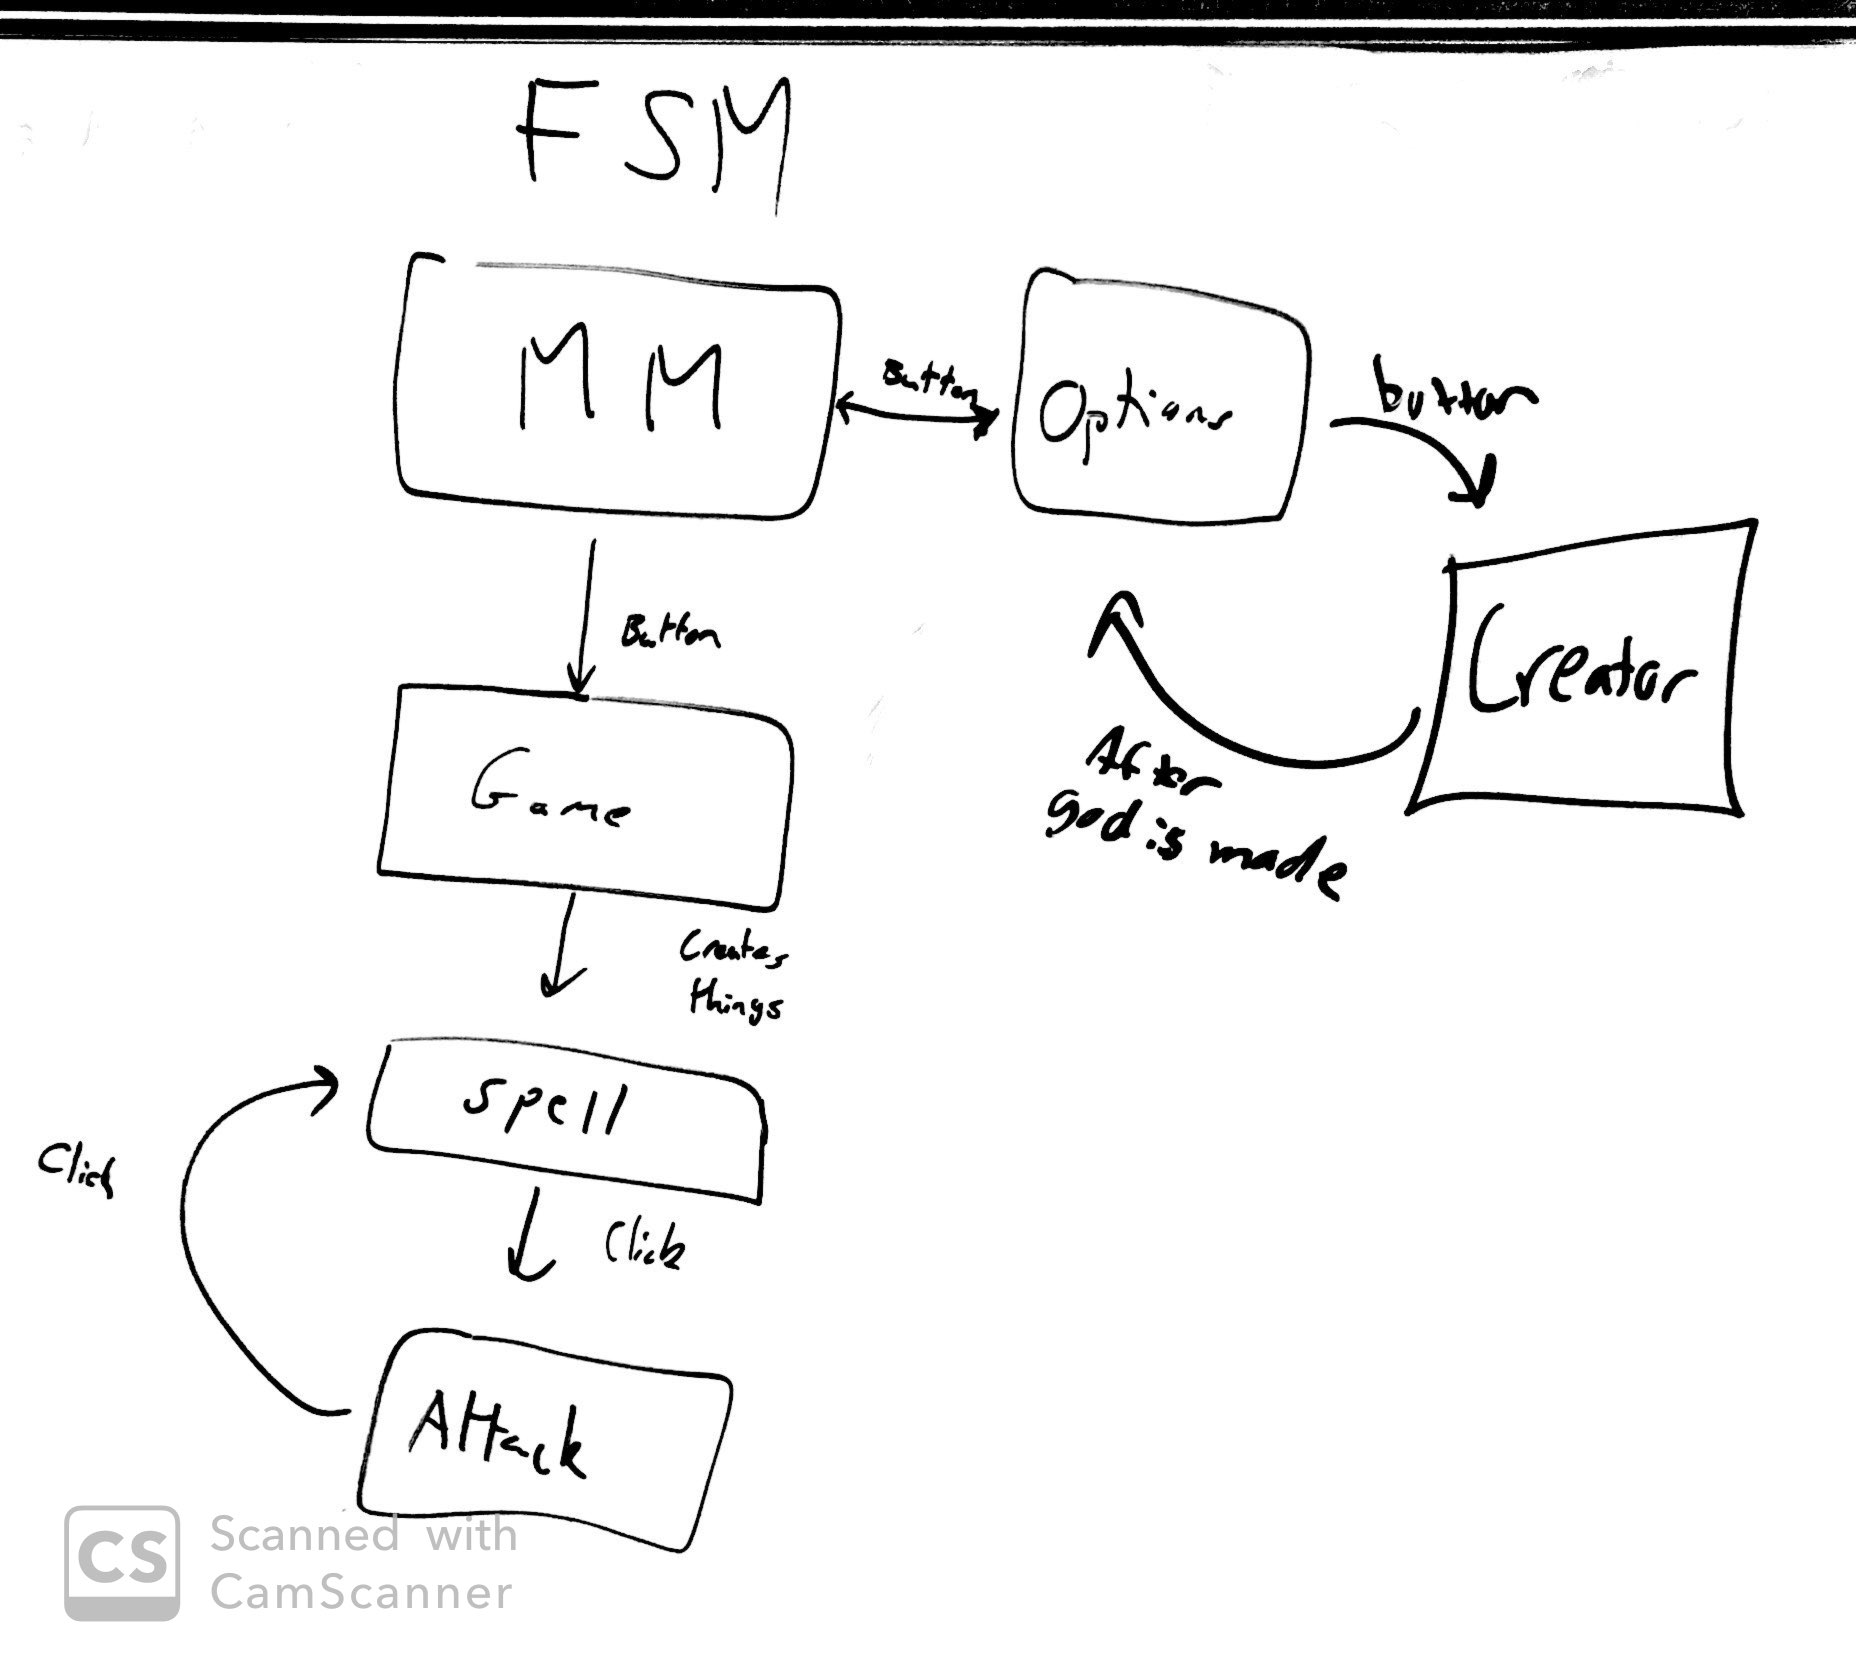 FSM
MM
Button
Options
button
Creator
After
god is made
Button
Game
Creates
things
Spell
Click
Click
Attack
CS
Scanned with
CamScanner